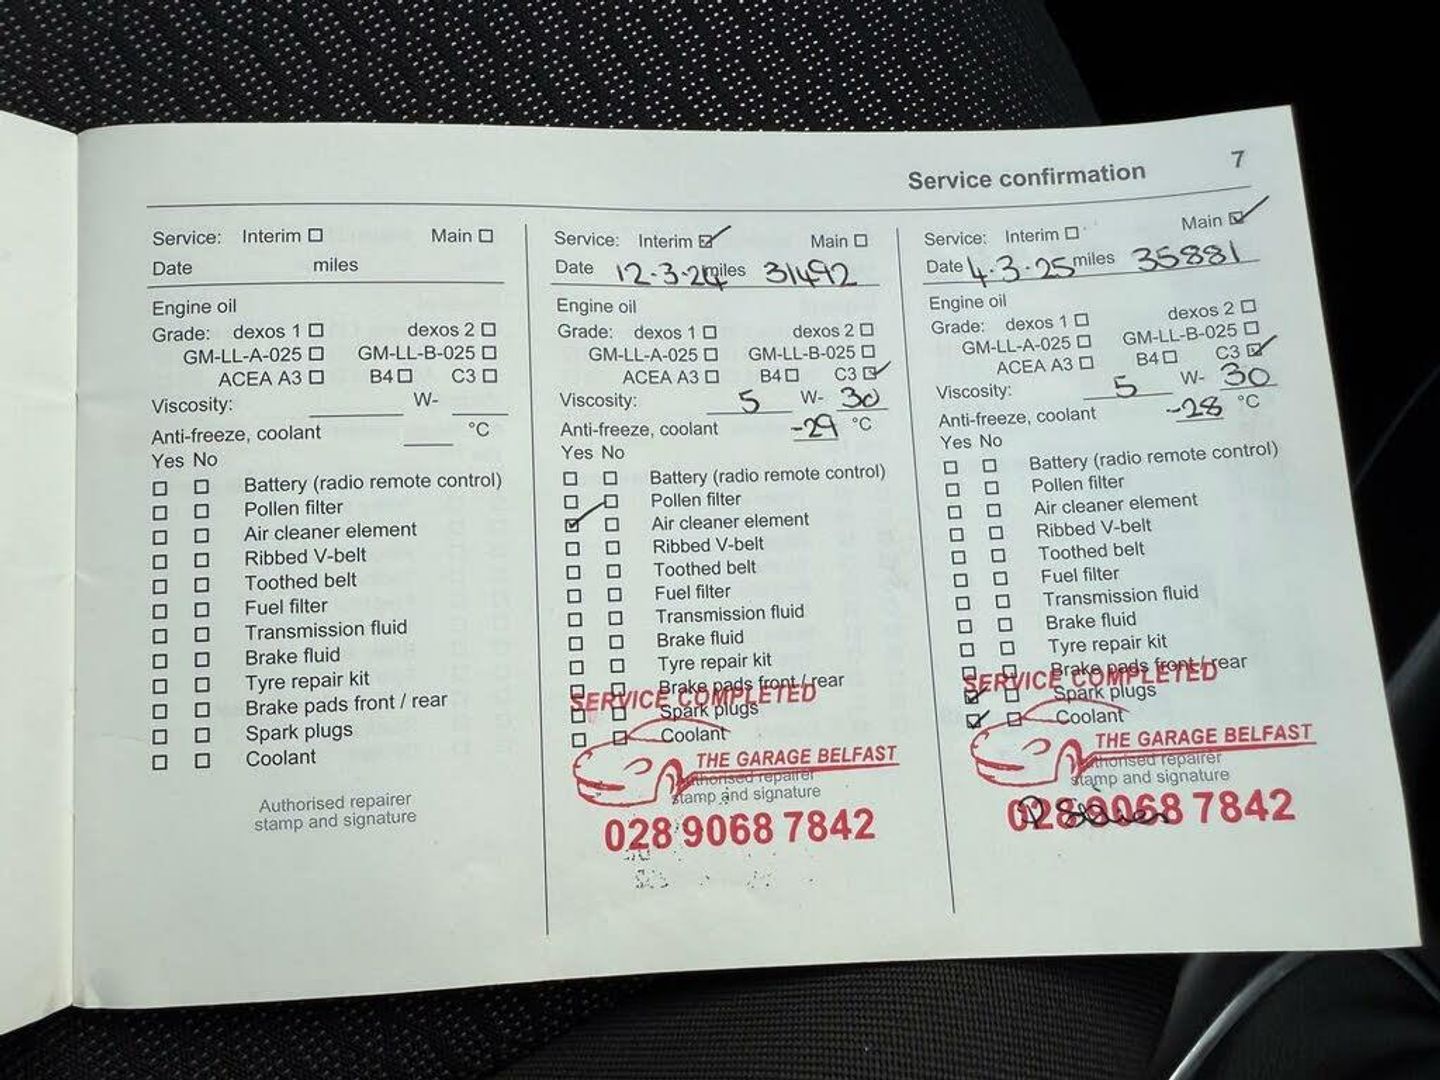 7
Service confirmation
Service: Interim Main
Date miles
Engine oil
Grade: dexos 1 dexos 2
GM-LL-A-025 GM-LL-B-025
ACEA A3 B4 C3
Viscosity: W-
Anti-freeze, coolant °C
Yes No
Battery (radio remote control)
Pollen filter
Air cleaner element
Ribbed V-belt
Toothed belt
Fuel filter
Transmission fluid
Brake fluid
Tyre repair kit
Brake pads front / rear
Spark plugs
Coolant
Authorised repairer
stamp and signature
Service: Interim Main
Date 12.3.24 miles 31492
Engine oil
Grade: dexos 1 dexos 2
GM-LL-A-025 GM-LL-B-025
ACEA A3 B4 C3
Viscosity: 5 W- 30
Anti-freeze, coolant -29 °C
Yes No
Battery (radio remote control)
Pollen filter
Air cleaner element
Ribbed V-belt
Toothed belt
Fuel filter
Transmission fluid
Brake fluid
Tyre repair kit
Brake pads front / rear
SERVICE COMPLETED
Spark plugs
Coolant
THE GARAGE BELFAST
Authorised repairer
stamp and signature
028 9068 7842
Service: Interim Main
Date 4.3.25 miles 35881
Engine oil
Grade: dexos 1 dexos 2
GM-LL-A-025 GM-LL-B-025
ACEA A3 B4 C3
Viscosity: 5 W- 30
Anti-freeze, coolant -28 °C
Yes No
Battery (radio remote control)
Pollen filter
Air cleaner element
Ribbed V-belt
Toothed belt
Fuel filter
Transmission fluid
Brake fluid
Tyre repair kit
Brake pads front / rear
SERVICE COMPLETED
Spark plugs
Coolant
THE GARAGE BELFAST
Authorised repairer
stamp and signature
028 9068 7842